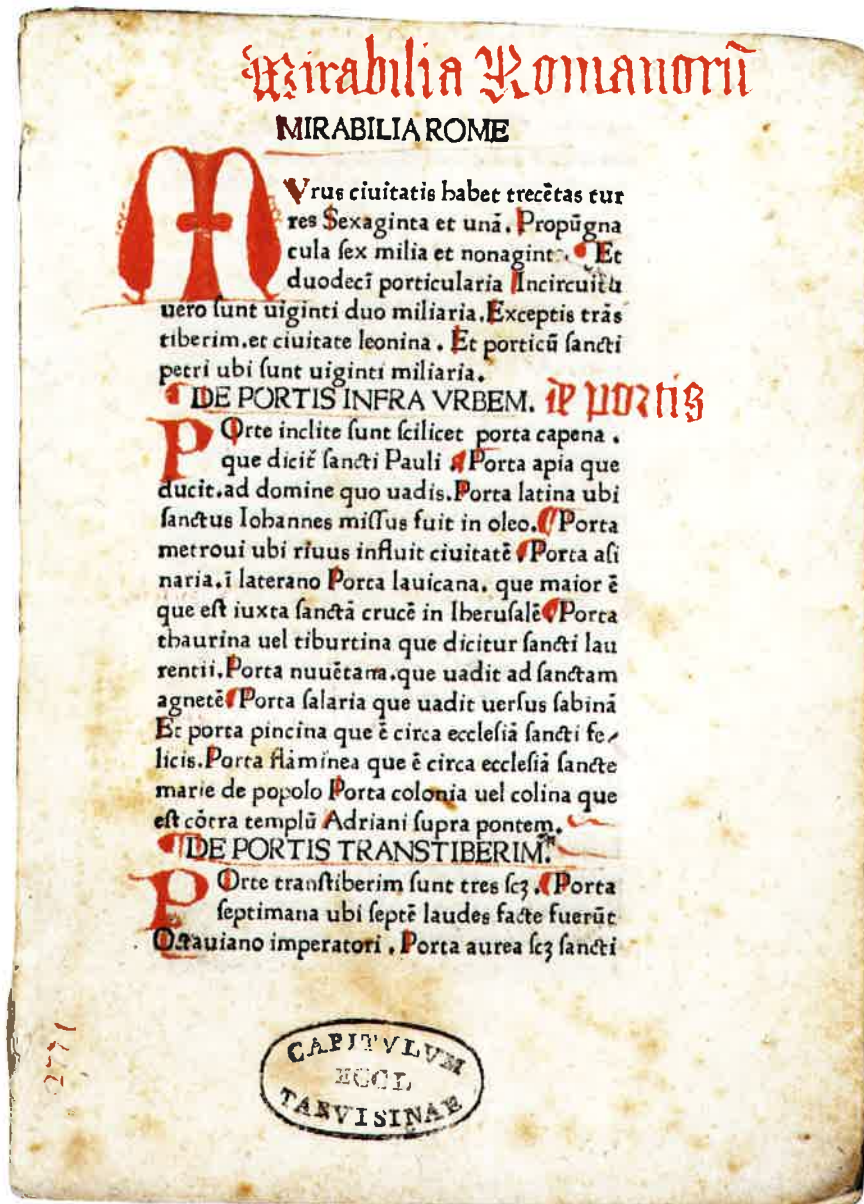 Mirabilia Romanorū
MIRABILIA ROME
MVrus ciuitatis habet trecētas tur
res Sexaginta et unā. Propūgna
cula ſex milia et nonagint. Et
duodecī porticularia Incircuitu
uero ſunt uiginti duo miliaria. Exceptis trās
tiberim. et ciuitate leonina. Et porticū ſancti
petri ubi ſunt uiginti miliaria.
DE PORTIS INFRA VRBEM. de portis
POrte inclite ſunt ſcilicet porta capena.
que dicit̄ ſancti Pauli Porta apia que
ducit. ad domine quo uadis. Porta latina ubi
ſanctus Iohannes miſſus fuit in oleo. Porta
metroui ubi riuus influit ciuitatē Porta aſi
naria. ī laterano Porta lauicana. que maior ē
que eſt iuxta ſanctā crucē in Iheruſalē Porta
thaurina uel tiburtina que dicitur ſancti lau
rentii. Porta nuuētana. que uadit ad ſanctam
agnetē Porta ſalaria que uadit uerſus ſabinā
Et porta pincina que ē circa eccleſiā ſancti fe⸗
licis. Porta flāminea que ē circa eccleſiā ſancte
marie de popolo Porta colonia uel colina que
eſt cōtra templū Adriani ſupra pontem.
DE PORTIS TRANSTIBERIM.
POrte tranſtiberim ſunt tres ſcꝫ. Porta
ſeptimana ubi ſeptē laudes facte fuerūt
Octauiano imperatori. Porta aurea ſcꝫ ſancti
2771
CAPITVLVM
ECCL
TARVISINAE